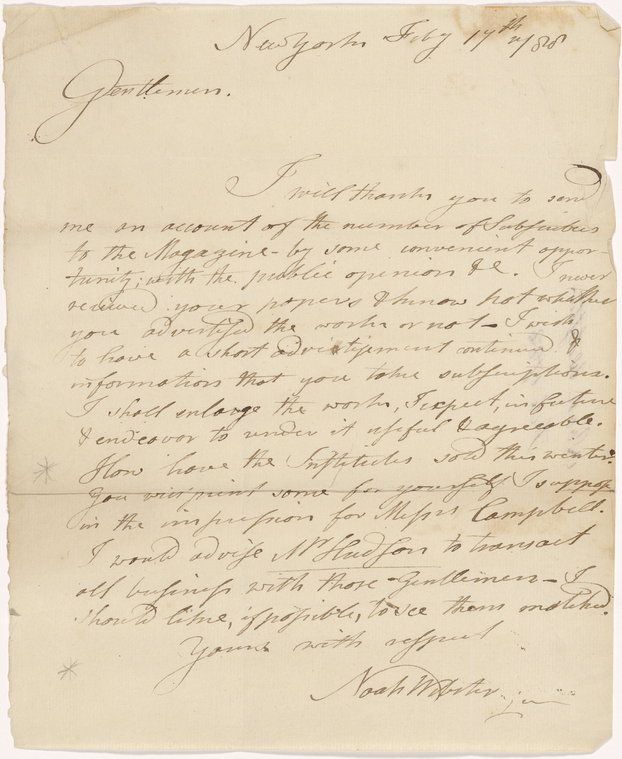 New York Feby 17th 1788
Gentlemen.
I will thank you to send
me an account of the number of Subscribers
to the Magazine - by some convenient oppor-
tunity; with the public opinion &c. I never
received your papers & know not whether
you advertised the work or not - I wish
to have a short advertisement continued &
information that you take subscriptions.
I shall enlarge the work, I expect, in future
& endeavor to render it useful & agreeable.
How have the Institutes sold this winter?
You will print some for yourself I suppose
in the impression for Messrs Campbell.
I would advise Mr Hudson to transact
all business with those Gentlemen - I
should like, if possible, to see them matched.
Yours with respect
Noah Webster jun